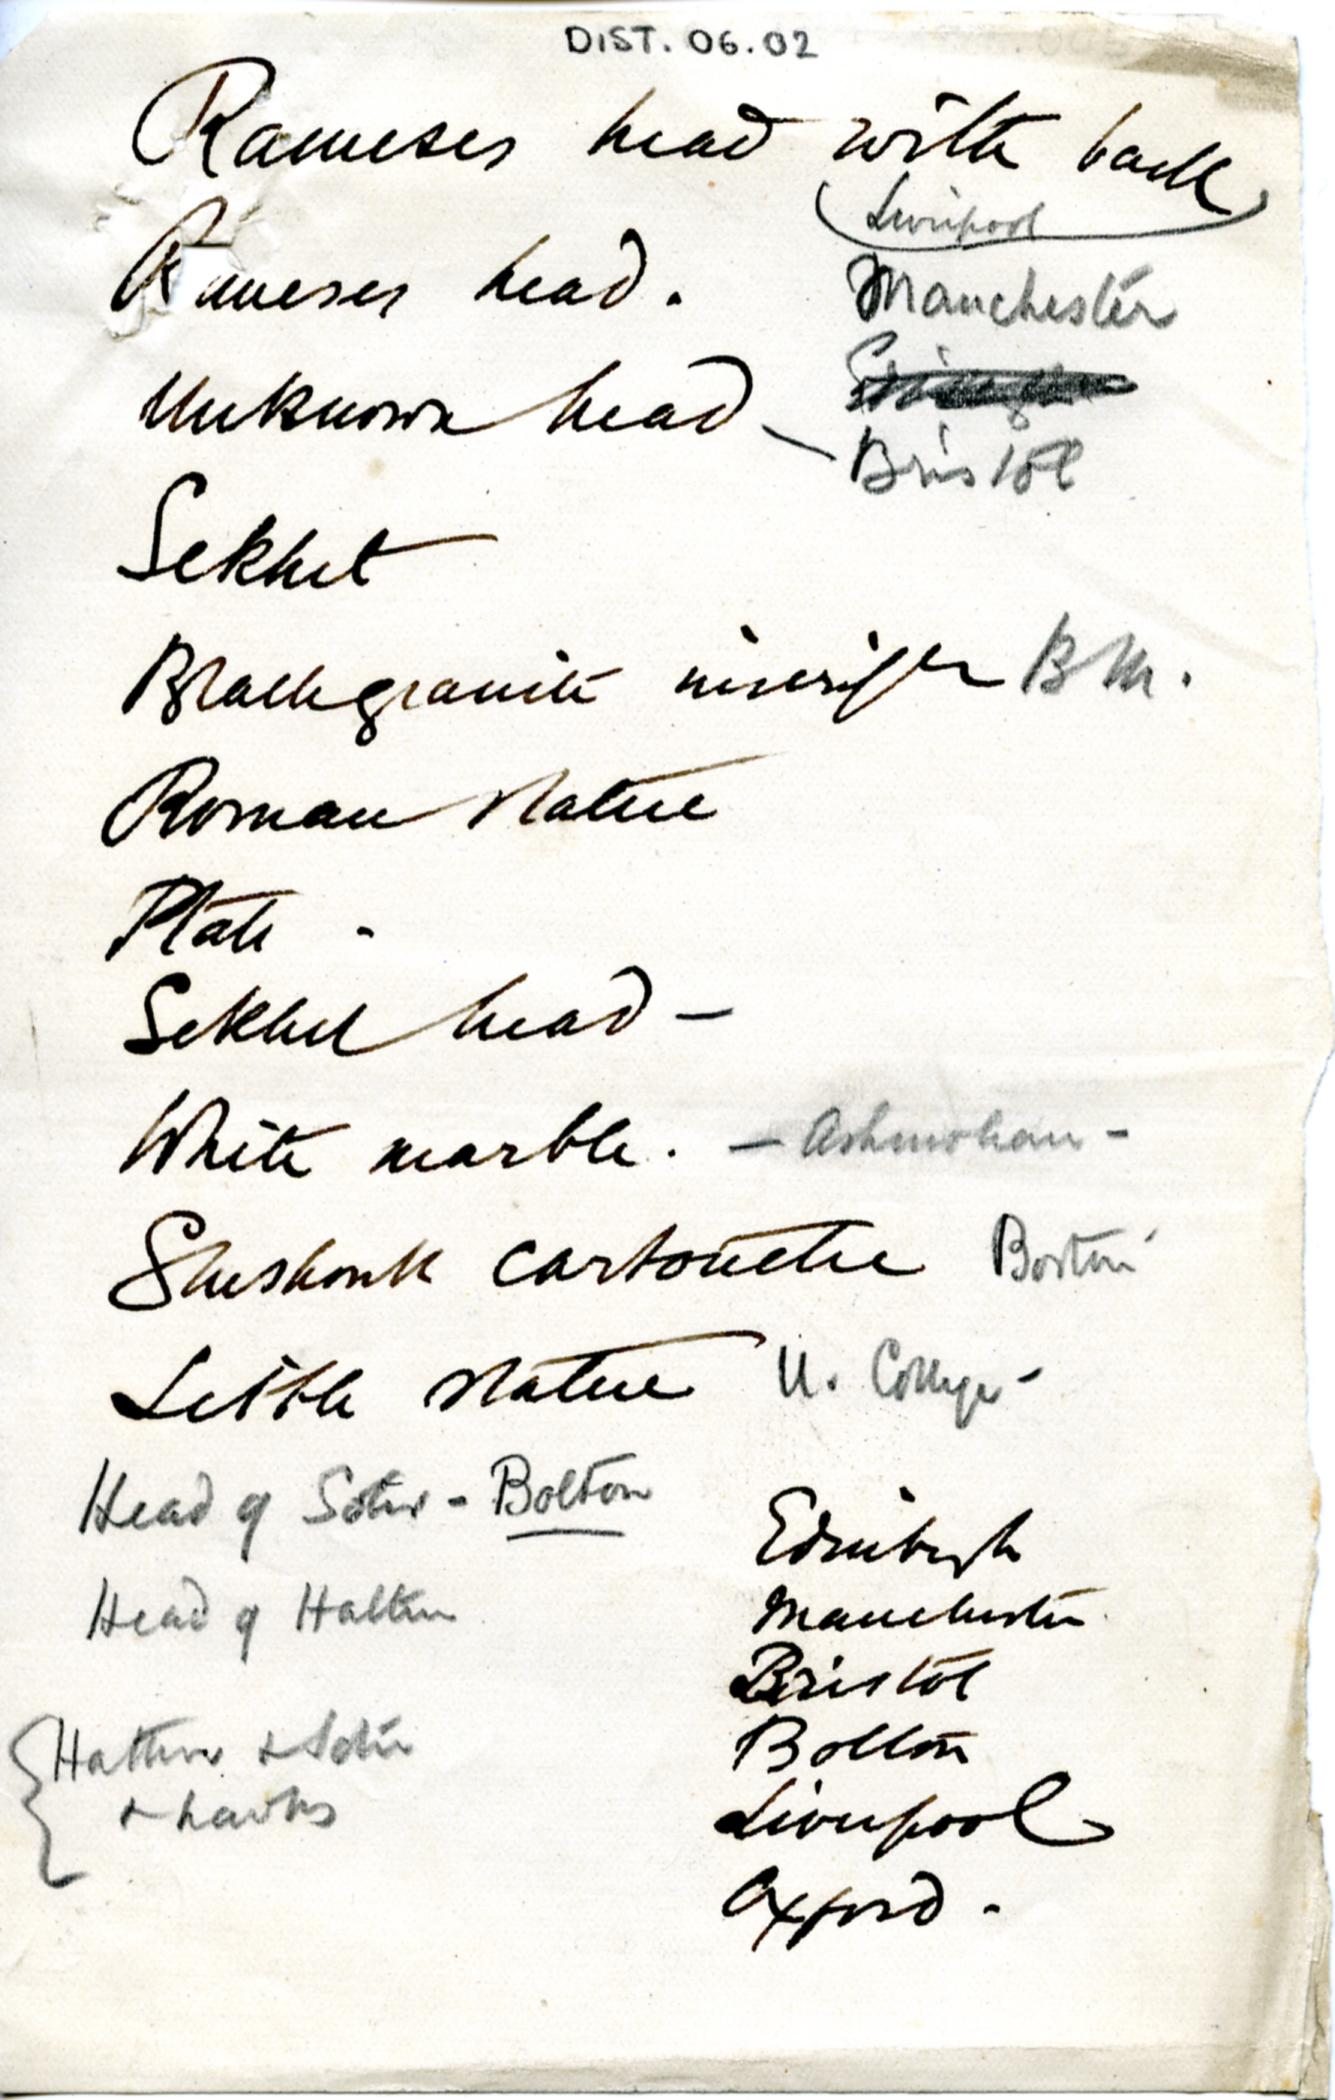 DIST. 06.02
Rameses head with back
Liverpool
Rameses head. Manchester
Unknown head – Bristol
Sekhet
Black granite inscript BM.
Roman statue
Ptah -
Sekhet head –
White marble. – Ashmolean –
Sheshonk cartouche Boston
Little statue U. College -
Head of Soter - Bolton
Edinburgh
Head of Hathor
Manchester
Bristol
Hathor & Soter
Bolton
& hawks
Liverpool
Oxford.